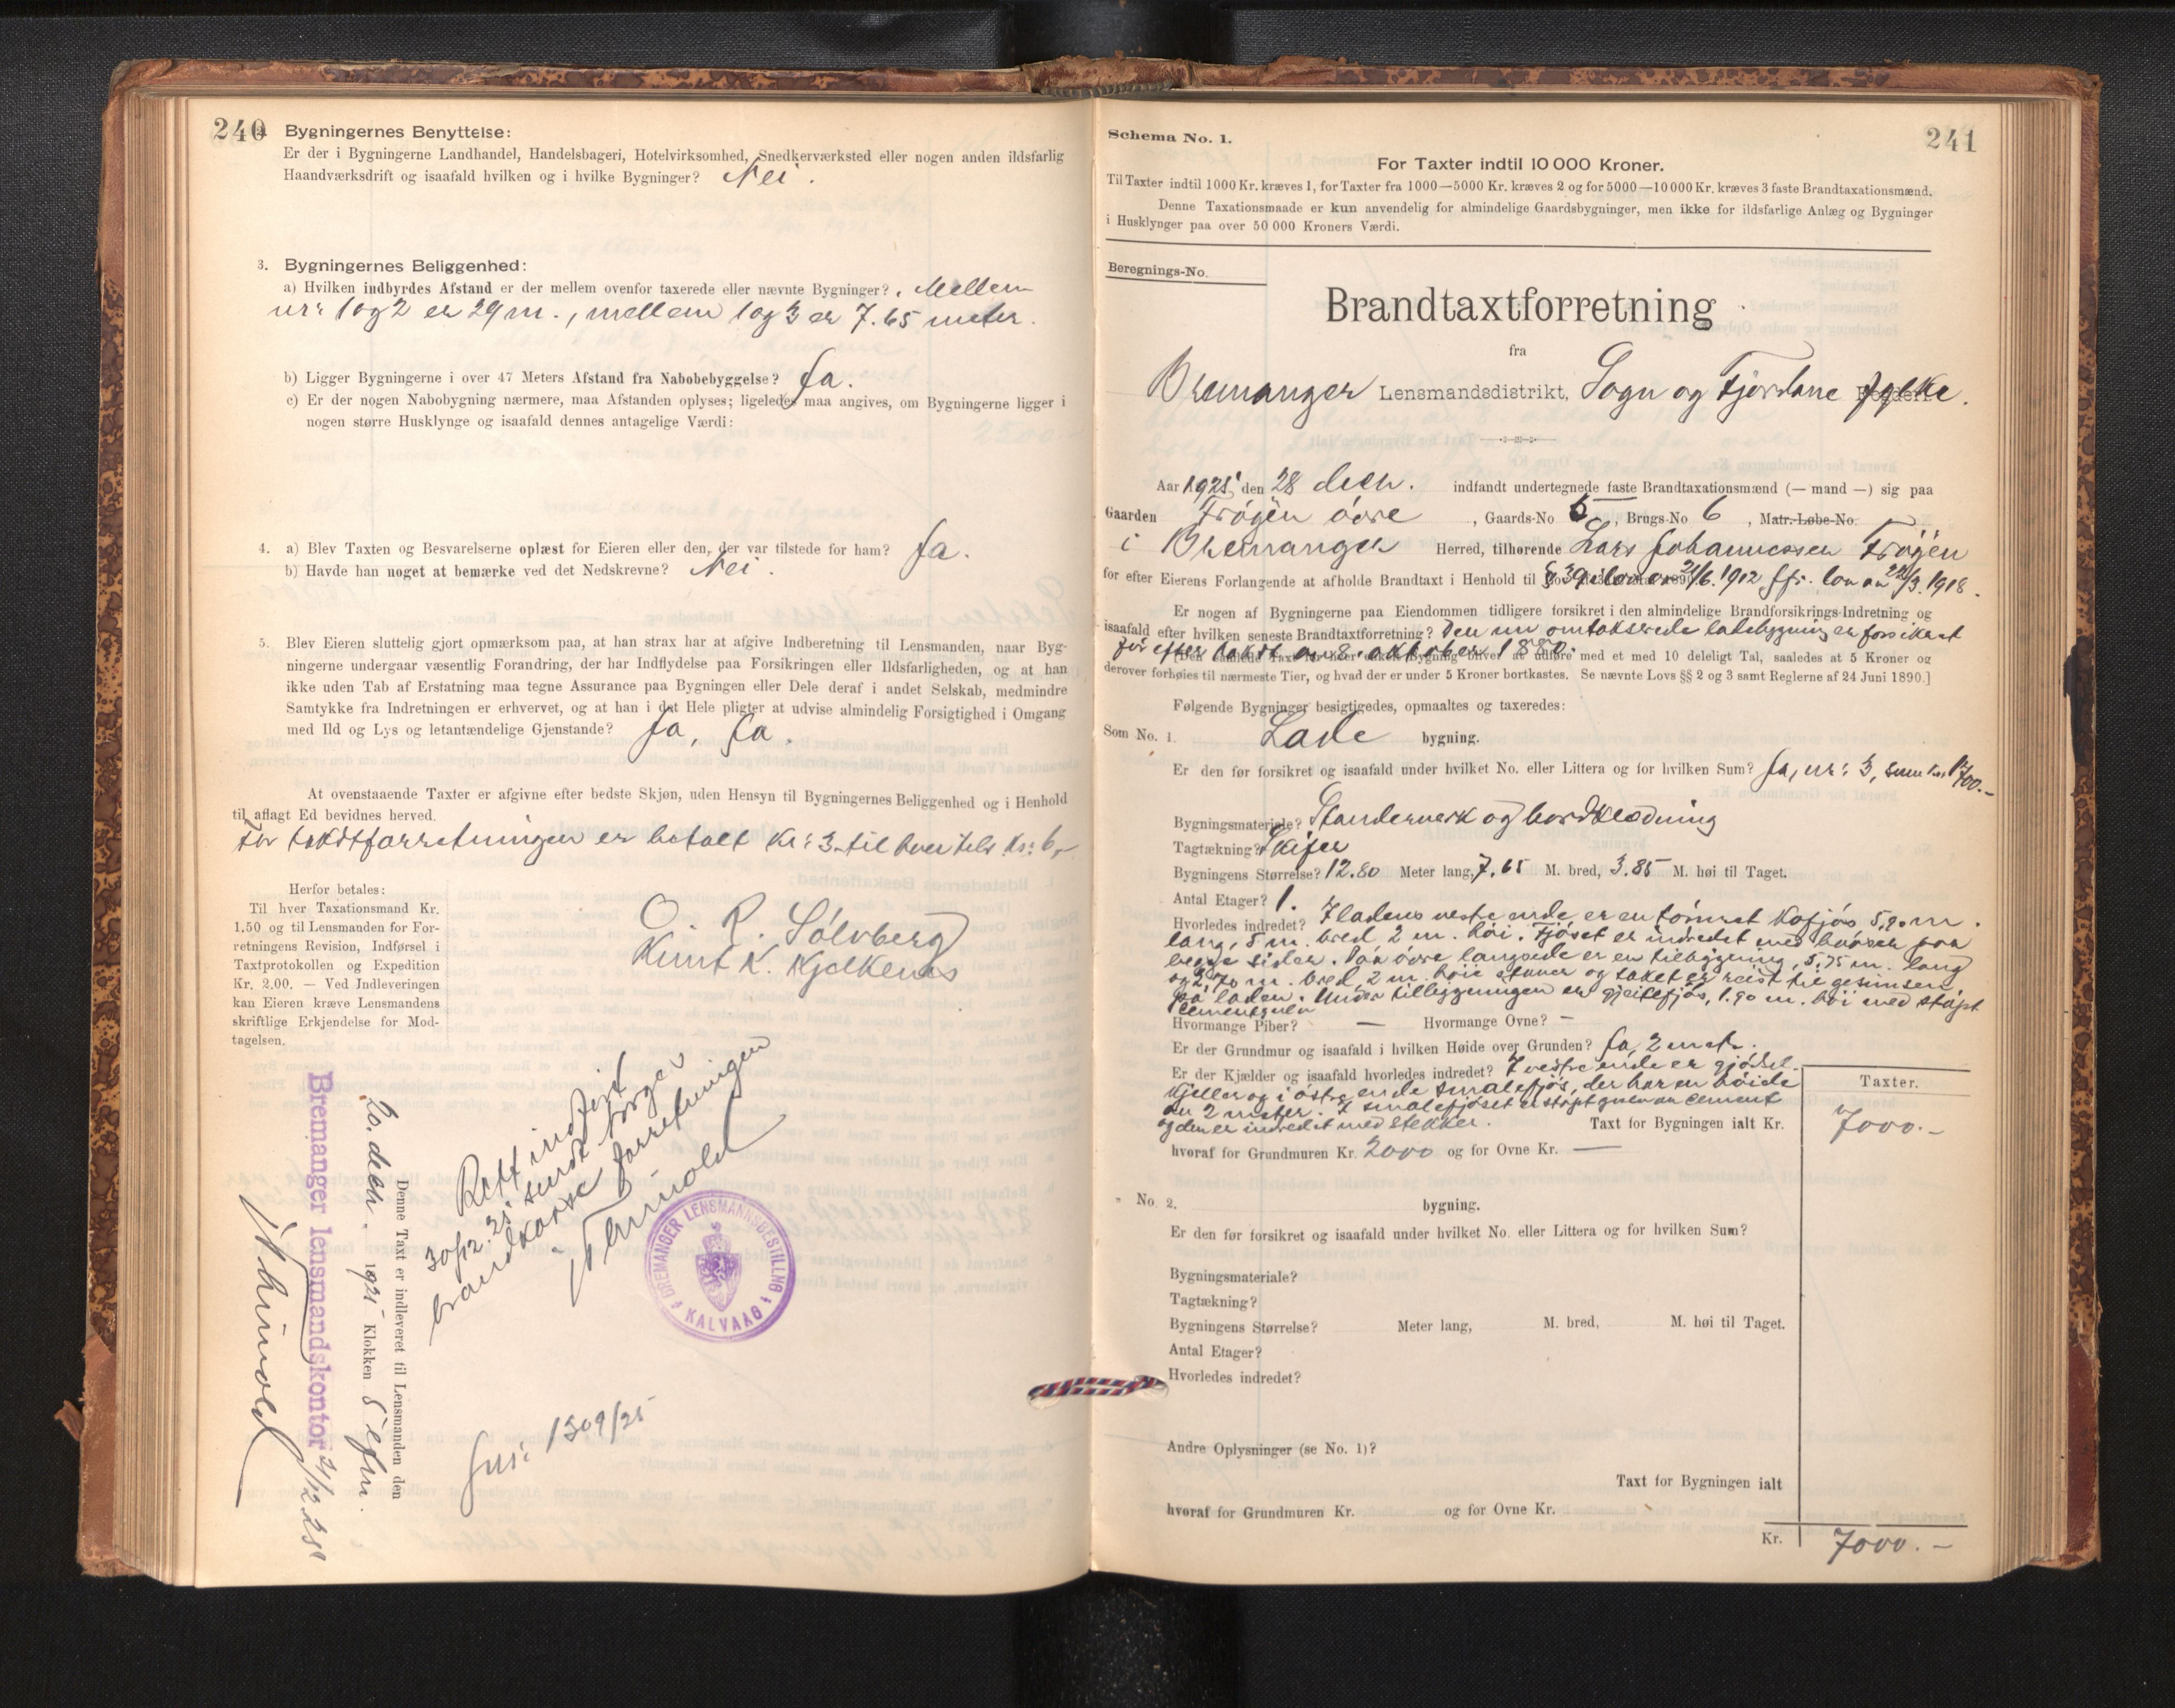 240
2. Bygningernes Benyttelse:
Er der i Bygningerne Landhandel, Handelsbageri, Hotelvirksomhed, Snedkerværksted eller nogen anden ildsfarlig
Haandværksdrift og isaafald hvilken og i hvilke Bygninger? Nei.
3. Bygningernes Beliggenhed:
a) Hvilken indbyrdes Afstand er der mellem ovenfor taxerede eller nævnte Bygninger? Mellem
nr: 1 og 2 er 29 m., mellem 1 og 3 er 7.65 meter.
b) Ligger Bygningerne i over 47 Meters Afstand fra Nabobebyggelse? Ja.
c) Er der nogen Nabobygning nærmere, maa Afstanden oplyses; ligeledes maa angives, om Bygningerne ligger i
nogen større Husklynge og isaafald dennes antagelige Værdi:
4. a) Blev Taxten og Besvarelserne oplæst for Eieren eller den, der var tilstede for ham? Ja.
b) Havde han noget at bemærke ved det Nedskrevne? Nei.
5. Blev Eieren sluttelig gjort opmærksom paa, at han strax har at afgive Indberetning til Lensmanden, naar Byg-
ningerne undergaar væsentlig Forandring, der har Indflydelse paa Forsikringen eller Ildsfarligheden, og at han
ikke uden Tab af Erstatning maa tegne Assurance paa Bygningen eller Dele deraf i andet Selskab, medmindre
Samtykke fra Indretningen er erhvervet, og at han i det Hele pligter at udvise almindelig Forsigtighed i Omgang
med Ild og Lys og letantændelige Gjenstande? Ja, Ja.
At ovenstaaende Taxter er afgivne efter bedste Skjøn, uden Hensyn til Bygningernes Beliggenhed og i Henhold
til aflagt Ed bevidnes herved.
For takstforretningen er betalt kr: 3- til hver tils. kr: 6,-
Herfor betales:
Til hver Taxationsmand Kr.
1.50 og til Lensmanden for For-
retningens Revision, Indførsel i
Taxtprotokollen og Expedition
Kr. 2.00. — Ved Indleveringen
kan Eieren kræve Lensmandens
skriftlige Erkjendelse for Mod-
tagelsen.
O. R. Sólvberg
Knut K. Kjelkenes
Rett indført
30/12.25. sendt
brandkasse forretningen
BREMANGER LENSMANNSBESTILLING
KALVAAG
Jnr: 1309/25
Denne Taxt er indleveret til Lensmanden den
20. decb. 1925 Klokken 5 efm.
Bremanger lensmandskontor 21/12.25
241
Schema No. 1.
For Taxter indtil 10 000 Kroner.
Til Taxter indtil 1000 Kr. kræves 1, for Taxter fra 1000—5000 Kr. kræves 2 og for 5000—10 000 Kr. kræves 3 faste Brandtaxationsmænd.
Denne Taxationsmaade er kun anvendelig for almindelige Gaardsbygninger, men ikke for ildsfarlige Anlæg og Bygninger
i Husklynger paa over 50 000 Kroners Værdi.
Beregnings-No.
Brandtaxtforretning
fra
Bremanger Lensmandsdistrikt, Sogn og Fjordane fylke.
Aar 1925 den 28 decb. indfandt undertegnede faste Brandtaxationsmænd (— mand —) sig paa
Gaarden Frógen óvre, Gaards-No 5, Brugs-No 6, Matr.-Løbe-No.
i Bremanger Herred, tilhørende Lars Johannessen Frógen
for efter Eierens Forlangende at afholde Brandtaxt i Henhold til § 39 i lov av 21/6.1912 jfr. lov av 22/3.1918.
Er nogen af Bygningerne paa Eiendommen tidligere forsikret i den almindelige Brandforsikrings-Indretning og
isaafald efter hvilken seneste Brandtaxtforretning? Den nu omtakserede ladebygning er forsikret
før efter takst av 8. oktober 1880.
[Den samlede Taxt for hver enkelt Bygning bliver at udføre med et med 10 deleligt Tal, saaledes at 5 Kroner og
derover forhøies til nærmeste Tier, og hvad der er under 5 Kroner bortkastes. Se nævnte Lovs §§ 2 og 3 samt Reglerne af 24 Juni 1890.]
Følgende Bygninger besigtigedes, opmaaltes og taxeredes:
Som No. 1. Lade bygning.
Er den før forsikret og isaafald under hvilket No. eller Littera og for hvilken Sum? Ja, nr: 3, sum kr. 1700.-
Bygningsmateriale? Standerverk og bordklædning
Tagtækning? Skifer
Bygningens Størrelse? 12.80 Meter lang, 7.65 M. bred, 3.85 M. høi til Taget.
Antal Etager? 1.
Hvorledes indredet? I ladens vestre ende er en tómret kofjós 5,90 m.
lang, 5 m. bred 2 m. hói. Fjóset er indredet med båser paa
begge sider. Paa óvre langside er en tilbygning, 5,75 m. lang
og 2,70 m. bred, 2 m. hóie stuver og taket er reist til gesimsen
på laden. Under tilbyggningen er gjeitefjós, 1.90 m. hói med stópt
cementgulv
Hvormange Piber? — Hvormange Ovne? —
Er der Grundmur og isaafald i hvilken Høide over Grunden? Ja 2 met.
Er der Kjælder og isaafald hvorledes indredet? I vestre ende er gjódsel-
kjeller og i óstre ende smalefjós, der har en hóide
av 2 meter. I smalefjóset er stópt gulv av cement
og den er indredet med stekker. Taxt for Bygningen ialt Kr.
Taxter.
7000.-
hvoraf for Grundmuren Kr. 2000 og for Ovne Kr. —
No. 2. bygning.
Er den før forsikret og isaafald under hvilket No. eller Littera og for hvilken Sum?
Bygningsmateriale?
Tagtækning?
Bygningens Størrelse? Meter lang, M. bred, M. høi til Taget.
Antal Etager?
Hvorledes indredet?
Andre Oplysninger (se No. 1)?
Taxt for Bygningen ialt
hvoraf for Grundmuren Kr. og for Ovne Kr.
Kr. 7000.-